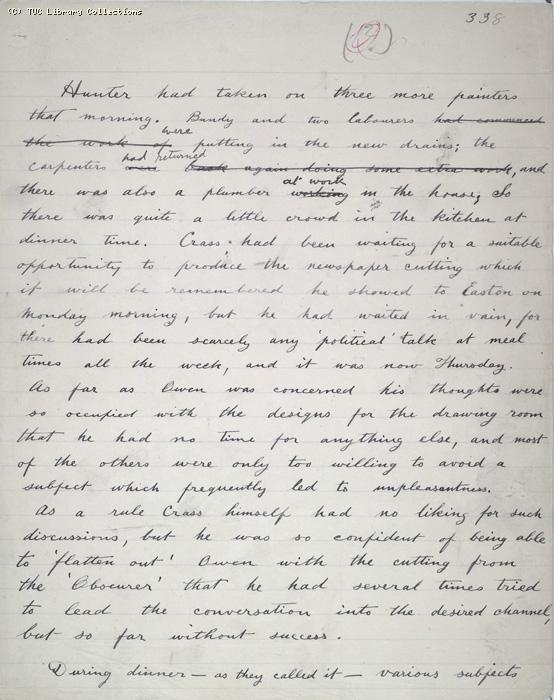 (C) TUC Library Collections
338
Hunter had taken on three more painters
that morning. Bundy and two labourers had commenced
the work of were putting in the new drains; the
carpenters were had returned back again doing some extra work, and
there was also a plumber working at work in the house; So
there was quite a little crowd in the kitchen at
dinner time. Crass had been waiting for a suitable
opportunity to produce the newspaper cutting which
it will be remembered he showed to Easton on
Monday morning, but he had waited in vain, for
there had been scarcely any 'political' talk at meal
times all the week, and it was now Thursday.
As far as Owen was concerned his thoughts were
so occupied with the designs for the drawing room
that he had no time for anything else, and most
of the others were only too willing to avoid a
subject which frequently led to unpleasantness.
As a rule Crass himself had no liking for such
discussions, but he was so confident of being able
to 'flatten out' Owen with the cutting from
the 'Obscurer' that he had several times tried
to lead the conversation into the desired channel,
but so far without success.
During dinner — as they called it — various subjects